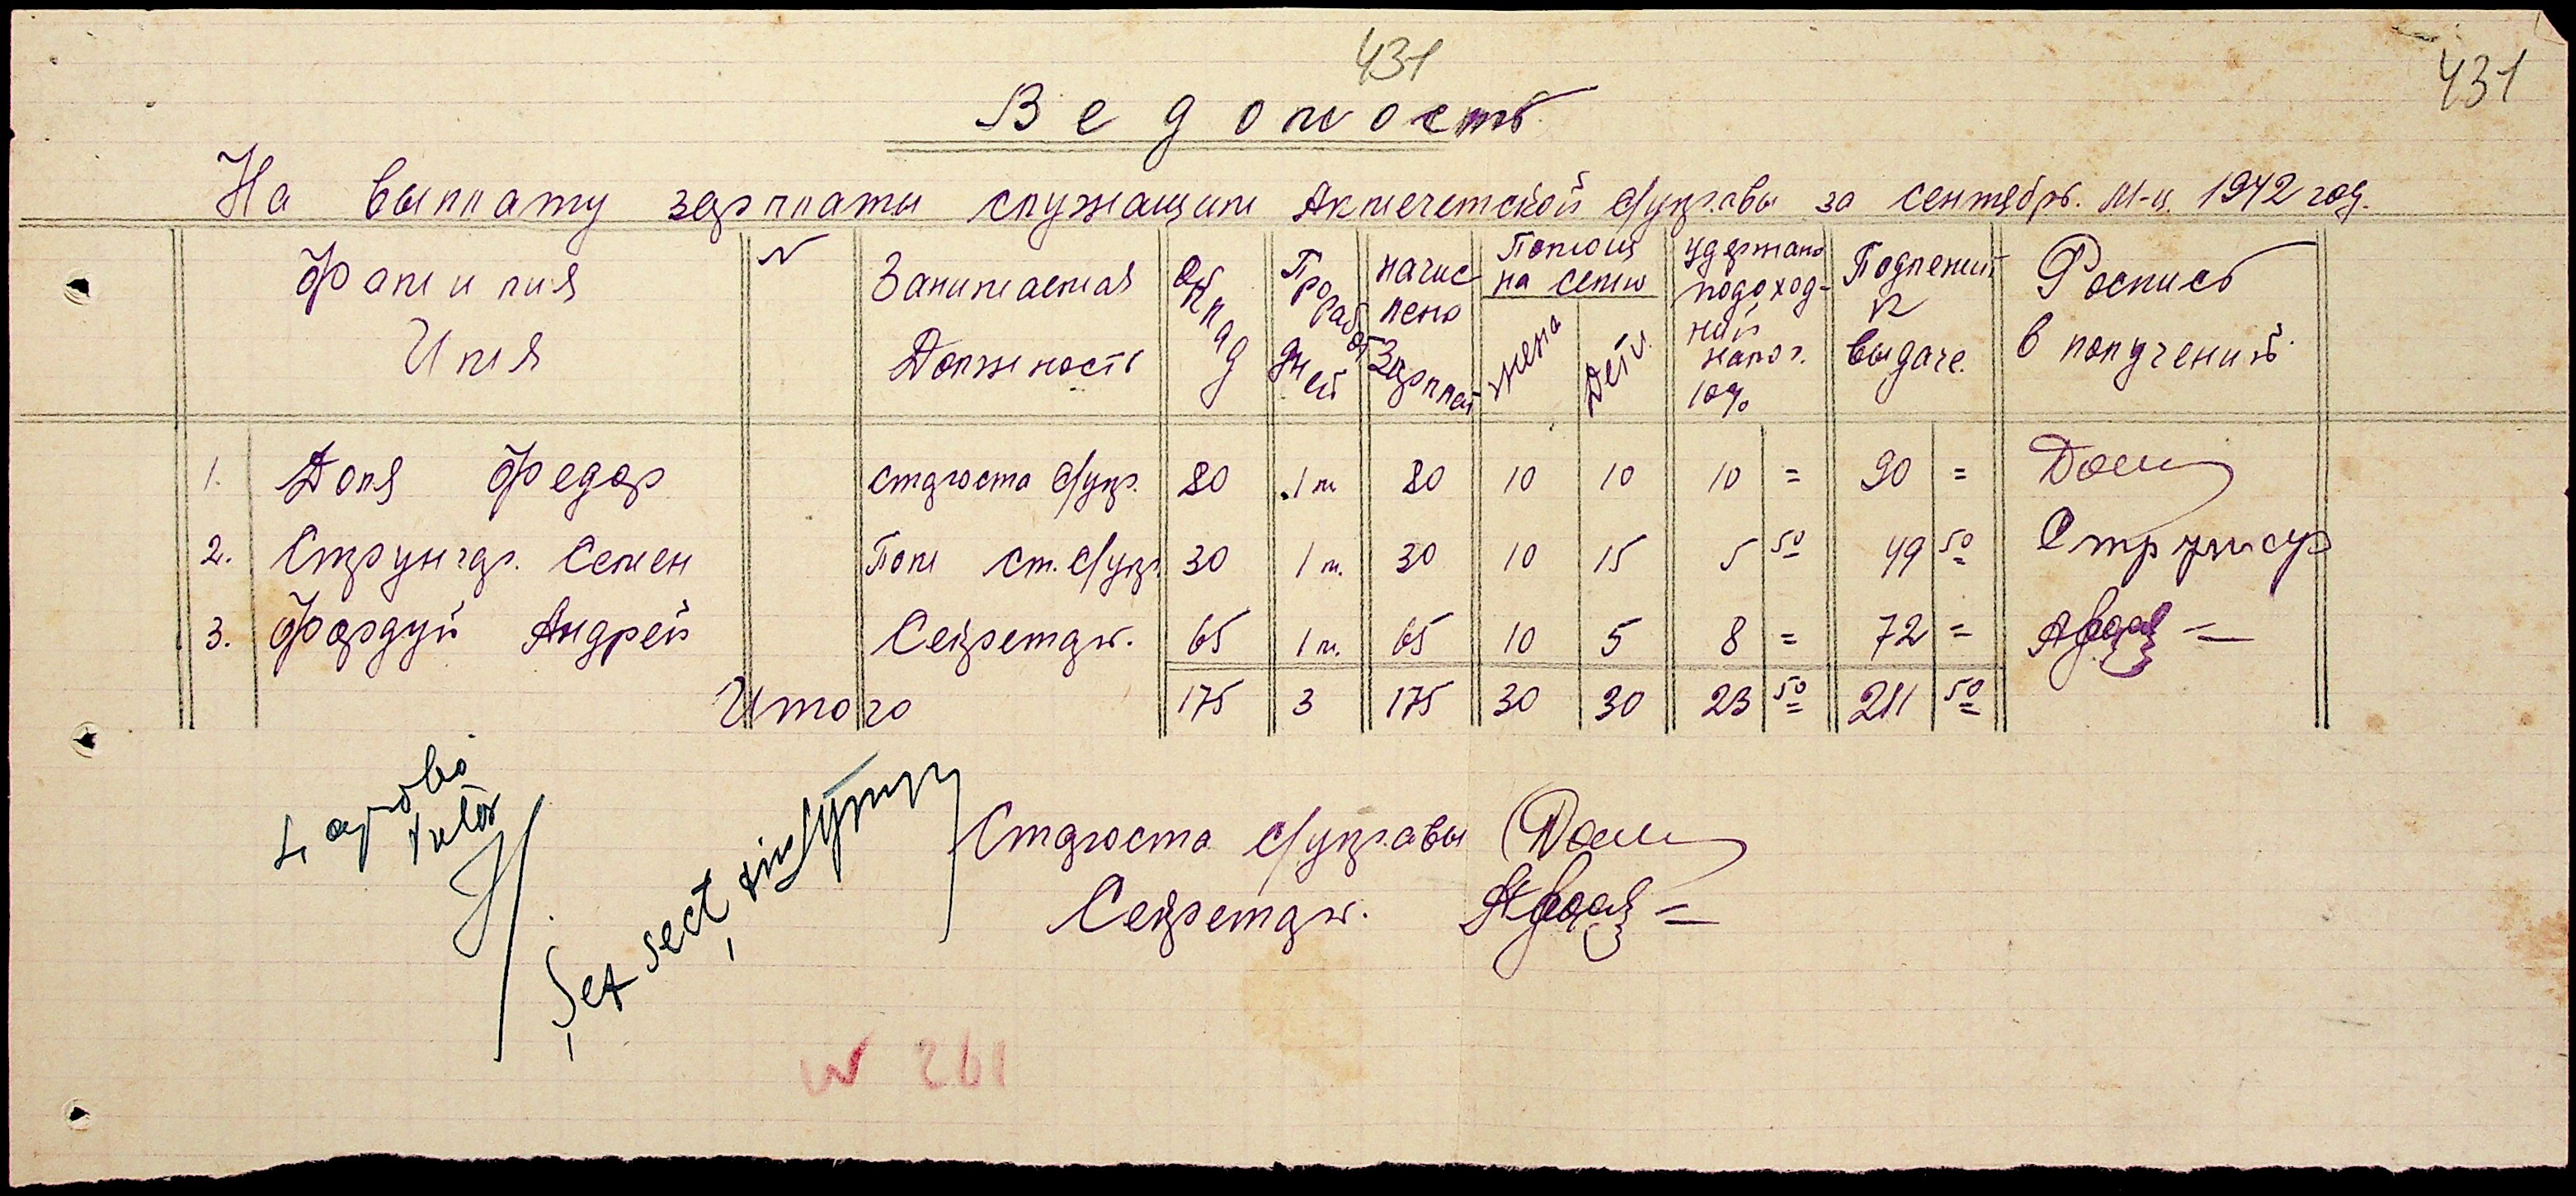 431
431
Ведомость
На выплату зарплаты служащим Акмечетской с/управы за сентябр. м-ц 1942 год.
Фамилия Имя | № | Занимаемая Должность | Оклад | Проработ дней | Начислено Зарплат | Помощ на семю жена | Дети | Удержано подоходний налог 10% | Подлежит к выдаче. | Роспись в получений
1. Доля Федор | староста с/упр. | 80 | 1 м | 80 | 10 | 10 | 10 = | 90 = | Доля
2. Струнгар. Семен | Пом ст. с/упр. | 30 | 1 м. | 30 | 10 | 15 | 5 50 | 49 50
3. Фардуй Андрей | Секретар. | 65 | 1 м. | 65 | 10 | 5 | 8 = | 72 =
Итого | 175 | 3 | 175 | 30 | 30 | 23 50 | 211 50
Староста с/управы Доля
Секретар.
Șef secț
№ 261